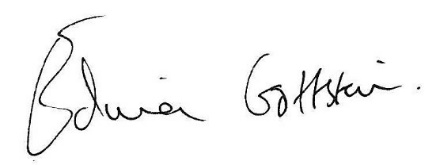 Edwin Gottstein.